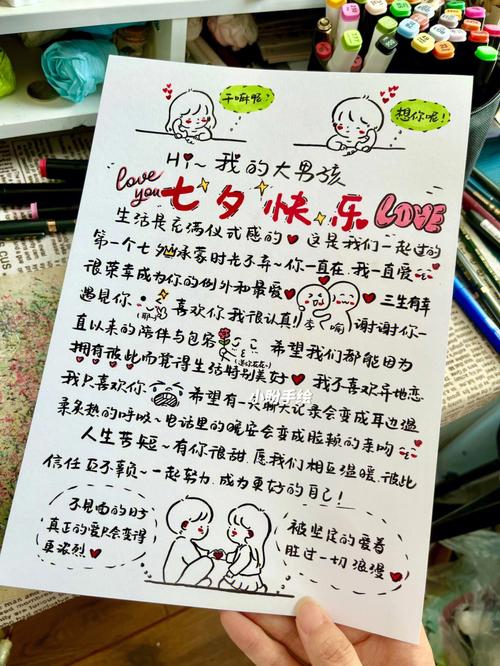 干嘛呢？
想你呢！
Hi~ 我的大男孩
love you
七夕快乐
LOVE
生活是充满仪式感的❤这是我们一起过的
第一个七夕 承蒙时光不弃~你一直在，我一直爱
很荣幸成为你的例外和最爱❤ ❤三生有幸
遇见你 喜欢你我很认真! 谢谢你一
直以来的陪伴与包容 希望我们都能因为
拥有彼此而觉得生活特别美好❤ 我不喜欢异地恋
我只喜欢你 希望有一天聊天记录会变成耳边温
柔炙热的呼吸~电话里的晚安会变成脸颊的亲吻
人生苦短~有你很甜，愿我们相互温暖，彼此
信任 互不辜负~一起努力，成为更好的自己!
小盼手绘
不见面的日子
真正的爱只会变得
更浓烈❤
被坚定的爱着
胜过一切浪漫❤